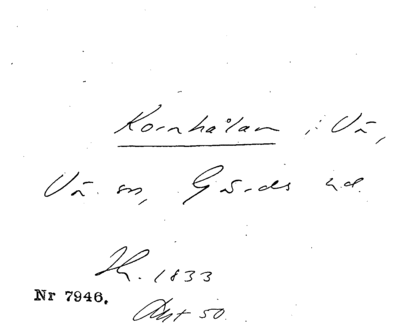 Kornhålan i Vä,
Vä sn, Gärds hd.
Th. 1833
Nr 7946.
Akt 50